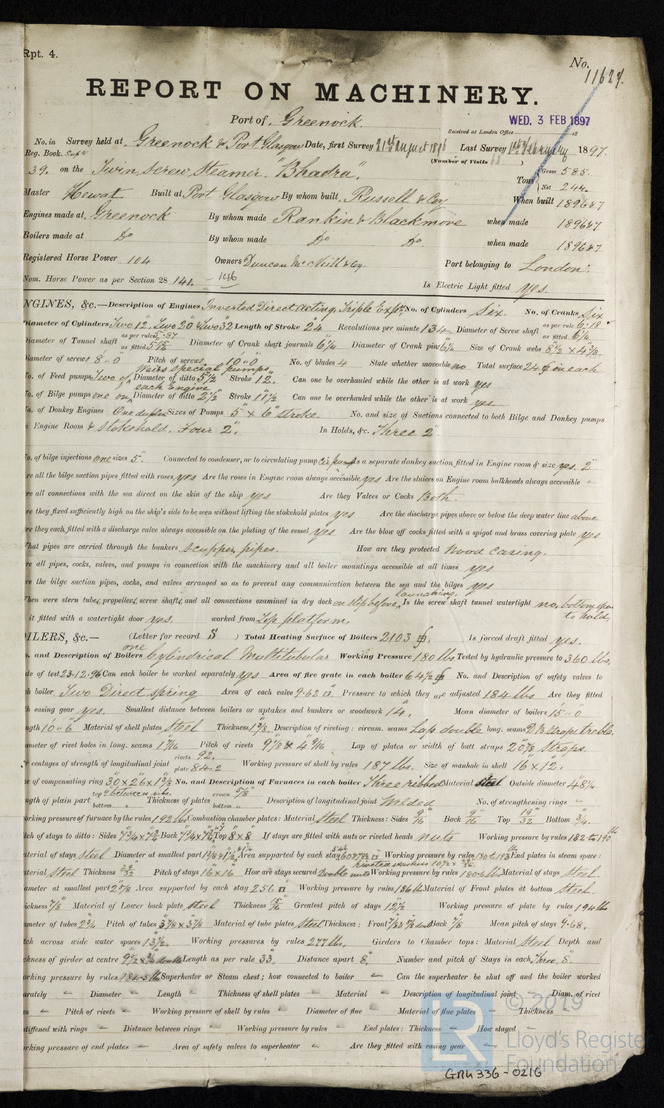 Rpt. 4.
No. 11627.
REPORT ON MACHINERY.
Port of Greenock
WED. 3 FEB 1897
Received at London Office
No. in Survey held at Greenock & Port Glasgow Date, first Survey 21st August 1896 Last Survey 1st February 1897.
Reg. Book. (Number of Visits
39. on the Twin Screw Steamer "Bhadra". Tons Gross 585.
Net 244.
Master Hewat Built at Port Glasgow By whom built, Russell & Coy When built 1896&7
Engines made at Greenock By whom made Rankin & Blackmore when made 1896&7
Boilers made at Do By whom made Do Do. when made 1896&7
Registered Horse Power 104 Owners Duncan McNeill & Coy. Port belonging to London.
Nom. Horse Power as per Section 28 141. 146 Is Electric Light fitted yes.
NGINES, &c.—Description of Engines Inverted Direct acting, Triple Expn. No. of Cylinders Six. No. of Cranks Six
Diameter of Cylinders Two 12", Two 20" & Two 32" Length of Stroke 24 Revolutions per minute 134 Diameter of Screw shaft as per rule 6.18" as fitted 6¼
Diameter of Tunnel shaft as per rule 5.87 as fitted Diameter of Crank shaft journals 6¼ Diameter of Crank pins 6½ Size of Crank webs 8½ × 4⅜
Diameter of screws 8-0 Pitch of screws 10-0 No. of blades 4 State whether moveable no Total surface 24 ft on each
No. of Feed pumps Two Pairs special pumps Diameter of ditto 5½ Stroke 12. Can one be overhauled while the other is at work yes
No. of Bilge pumps one on each Engine Diameter of ditto 2½ Stroke 11½ Can one be overhauled while the other is at work yes
No. of Donkey Engines One duplex Sizes of Pumps 5" × 6" stroke. No. and size of Suctions connected to both Bilge and Donkey pumps
Engine Room & Stokehold. Four 2". In Holds, &c. Three 2"
No. of bilge injections one sizes 5". Connected to condenser, or to circulating pump cir pump Is a separate donkey suction fitted in Engine room & size yes. 2"
re all the bilge suction pipes fitted with roses yes Are the roses in Engine room always accessible yes Are the sluices on Engine room bulkheads always accessible -
re all connections with the sea direct on the skin of the ship yes Are they Valves or Cocks Both.
re they fixed sufficiently high on the ship's side to be seen without lifting the stokehold plates yes Are the discharge pipes above or below the deep water line above
re they each fitted with a discharge valve always accessible on the plating of the vessel yes Are the blow off cocks fitted with a spigot and brass covering plate yes
What pipes are carried through the bunkers scupper pipes. How are they protected Wood casing.
re all pipes, cocks, valves, and pumps in connection with the machinery and all boiler mountings accessible at all times yes
re the bilge suction pipes, cocks, and valves arranged so as to prevent any communication between the sea and the bilges yes
When were stern tubes, propellers, screw shafts, and all connections examined in dry dock on slip before launching. Is the screw shaft tunnel watertight no, bottom open to hold,
it fitted with a watertight door yes. worked from Top platform.
OILERS, &c.— (Letter for record S) Total Heating Surface of Boilers 2103 ft. Is forced draft fitted yes.
. and Description of Boilers one Cylindrical Multitubular Working Pressure 180 lbs Tested by hydraulic pressure to 360 lbs.
ate of test 23-12-96 Can each boiler be worked separately yes Area of fire grate in each boiler 64½ ft No. and Description of safety valves to
ch boiler Two Direct spring Area of each valve 9.62 Pressure to which they are adjusted 184 lbs Are they fitted
th easing gear yes. Smallest distance between boilers or uptakes and bunkers or woodwork 14. Mean diameter of boilers 15-0
ngth 10-6 Material of shell plates Steel Thickness Description of riveting: circum. seams Lap double long. seams D.B. straps treble.
ameter of rivet holes in long. seams Pitch of rivets Lap of plates or width of butt straps straps
rcentages of strength of longitudinal joint rivets 92. plate 84.2 Working pressure of shell by rules 187 lbs. Size of manhole in shell 16 × 12.
ze of compensating ring 30 × 26 × No. and Description of Furnaces in each boiler Three ribbed Material steel Outside diameter
ngth of plain part top bottom Thickness of plates crown bottom Description of longitudinal joint Welded No. of strengthening rings -
orking pressure of furnace by the rules 192 lbs Combustion chamber plates: Material Steel Thickness: Sides 9/16 Back 9/16 Top 19/32 Bottom ¾.
itch of stays to ditto: Sides Back Top 8 × 8 If stays are fitted with nuts or riveted heads nuts Working pressure by rules 182 to 190 lbs
aterial of stays Steel Diameter at smallest part Area supported by each stay Working pressure by rules End plates in steam space:
aterial Steel Thickness Pitch of stays 16 × 16. How are stays secured Double nuts Working pressure by rules 180.6 lbs Material of stays Steel.
iameter at smallest part 2⅞ Area supported by each stay 256 Working pressure by rules 186 lbs Material of Front plates at bottom Steel.
ickness ⅞ Material of Lower back plate Steel Thickness Greatest pitch of stays 12½ Working pressure of plate by rules 194 lbs
iameter of tubes 2¾ Pitch of tubes 3¾ × 3¾ Material of tube plates Steel Thickness: Front Back ⅞ Mean pitch of stays 9.68.
itch across wide water spaces 13½. Working pressures by rules 277 lbs. Girders to Chamber tops: Material Steel Depth and
ickness of girder at centre Length as per rule 33. Distance apart 8. Number and pitch of Stays in each Three 8"
orking pressure by rules 184.5 lbs Superheater or Steam chest; how connected to boiler - Can the superheater be shut off and the boiler worked
arately - Diameter - Length - Thickness of shell plates - Material - Description of longitudinal joint - Diam. of rivet
es - Pitch of rivets - Working pressure of shell by rules - Diameter of flue - Material of flue plates - Thickness
stiffened with rings - Distance between rings - Working pressure by rules - End plates: Thickness - How stayed
orking pressure of end plates - Area of safety valves to superheater - Are they fitted with easing gear -
© 2019
LR
Lloyd's Register
Foundation
GRK 336 - 0216